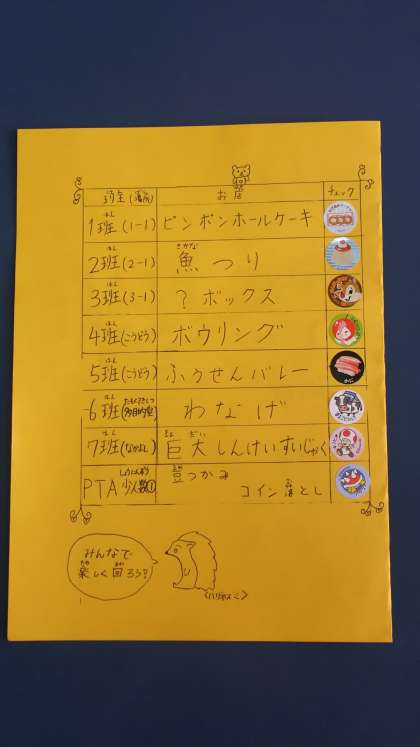 班(場所) お店 チェック
1班(1-1) ピンポンホールケーキ
2班(2-1) 魚つり
3班(3-1) ?ボックス
4班(こうどう) ボウリング
5班(こうどう) ふうせんバレー
6班(多目的室) わなげ
7班(なかよし) 巨大しんけいすいじゃく
PTA 少人数① 豆つかみ
コイン落とし
みんなで
楽しく回ろう!
かに